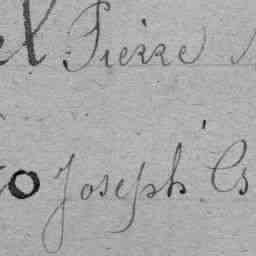 el Pierre
o Joseph Es